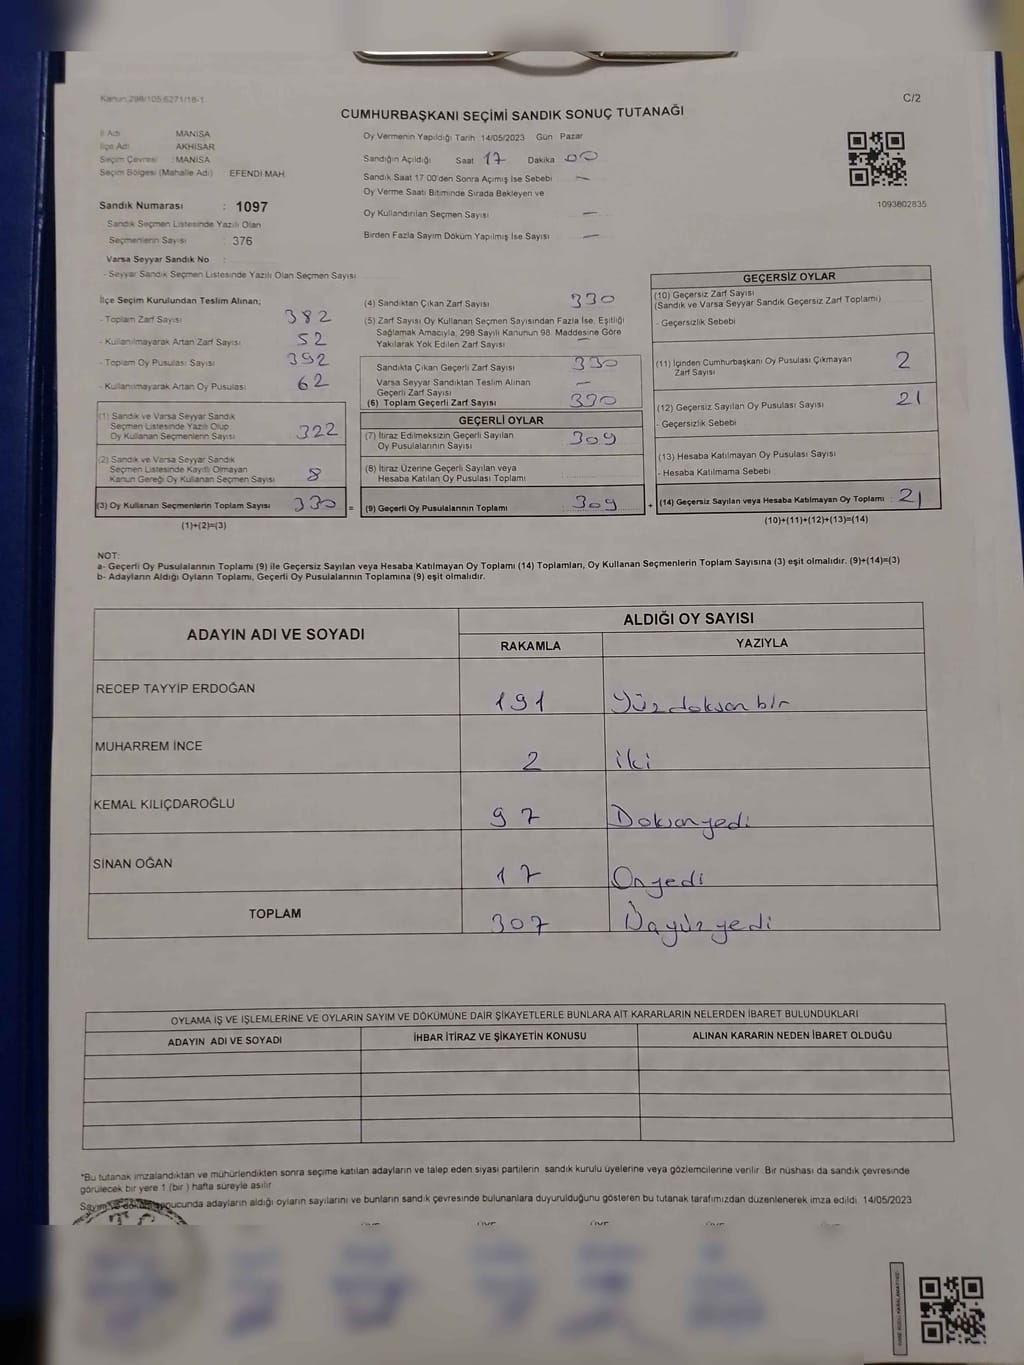 Kanun 298/105;6271/18-1
C/2
CUMHURBAŞKANI SEÇİMİ SANDIK SONUÇ TUTANAĞI
İl Adı : MANİSA
İlçe Adı : AKHİSAR
Seçim Çevresi : MANİSA
Seçim Bölgesi (Mahalle Adı) EFENDİ MAH.
Sandık Numarası : 1097
Sandık Seçmen Listesinde Yazılı Olan
Seçmenlerin Sayısı : 376
Varsa Seyyar Sandık No :
- Seyyar Sandık Seçmen Listesinde Yazılı Olan Seçmen Sayısı
Oy Vermenin Yapıldığı Tarih 14/05/2023 Gün Pazar
Sandığın Açıldığı Saat 17 Dakika 00
Sandık Saat 17.00'den Sonra Açımış İse Sebebi —
Oy Verme Saati Bitiminde Sırada Bekleyen ve
Oy Kullandırılan Seçmen Sayısı —
Birden Fazla Sayım Döküm Yapılmış İse Sayısı —
1093802835
İlçe Seçim Kurulundan Teslim Alınan;
- Toplam Zarf Sayısı 382
- Kullanılmayarak Artan Zarf Sayısı 52
- Toplam Oy Pusulası Sayısı 392
- Kullanılmayarak Artan Oy Pusulası 62
(1) Sandık ve Varsa Seyyar Sandık
Seçmen Listesinde Yazılı Olup
Oy Kullanan Seçmenlerin Sayısı 322
(2) Sandık ve Varsa Seyyar Sandık
Seçmen Listesinde Kayıtlı Olmayan
Kanun Gereği Oy Kullanan Seçmen Sayısı 8
(3) Oy Kullanan Seçmenlerin Toplam Sayısı 330 =
(1)+(2)=(3)
(4) Sandıktan Çıkan Zarf Sayısı 330
(5) Zarf Sayısı Oy Kullanan Seçmen Sayısından Fazla İse, Eşitliği
Sağlamak Amacıyla, 298 Sayılı Kanunun 98. Maddesine Göre
Yakılarak Yok Edilen Zarf Sayısı —
Sandıkta Çıkan Geçerli Zarf Sayısı 330
Varsa Seyyar Sandıktan Teslim Alınan
Geçerli Zarf Sayısı —
(6) Toplam Geçerli Zarf Sayısı 330
GEÇERLİ OYLAR
(7) İtiraz Edilmeksizin Geçerli Sayılan
Oy Pusulalarının Sayısı 309
(8) İtiraz Üzerine Geçerli Sayılan veya
Hesaba Katılan Oy Pusulası Toplamı
(9) Geçerli Oy Pusulalarının Toplamı : 309 +
GEÇERSİZ OYLAR
(10) Geçersiz Zarf Sayısı
(Sandık ve Varsa Seyyar Sandık Geçersiz Zarf Toplamı)
- Geçersizlik Sebebi
(11) İçinden Cumhurbaşkanı Oy Pusulası Çıkmayan
Zarf Sayısı 2
(12) Geçersiz Sayılan Oy Pusulası Sayısı 21
- Geçersizlik Sebebi
(13) Hesaba Katılmayan Oy Pusulası Sayısı
- Hesaba Katılmama Sebebi
(14) Geçersiz Sayılan veya Hesaba Katılmayan Oy Toplamı : 21
(10)+(11)+(12)+(13)=(14)
NOT:
a- Geçerli Oy Pusulalarının Toplamı (9) ile Geçersiz Sayılan veya Hesaba Katılmayan Oy Toplamı (14) Toplamları, Oy Kullanan Seçmenlerin Toplam Sayısına (3) eşit olmalıdır. (9)+(14)=(3)
b- Adayların Aldığı Oyların Toplamı, Geçerli Oy Pusulalarının Toplamına (9) eşit olmalıdır.
ADAYIN ADI VE SOYADI ALDIĞI OY SAYISI
RAKAMLA YAZIYLA
RECEP TAYYİP ERDOĞAN 191 Yüzdoksanbir
MUHARREM İNCE 2 iki
KEMAL KILIÇDAROĞLU 97 Doksanyedi
SİNAN OĞAN 17 Onyedi
TOPLAM 307 Üçyüzyedi
OYLAMA İŞ VE İŞLEMLERİNE VE OYLARIN SAYIM VE DÖKÜMÜNE DAİR ŞİKAYETLERLE BUNLARA AİT KARARLARIN NELERDEN İBARET BULUNDUKLARI
ADAYIN ADI VE SOYADI İHBAR İTİRAZ VE ŞİKAYETİN KONUSU ALINAN KARARIN NEDEN İBARET OLDUĞU
*Bu tutanak imzalandıktan ve mühürlendikten sonra seçime katılan adayların ve talep eden siyasi partilerin sandık kurulu üyelerine veya gözlemcilerine verilir. Bir nüshası da sandık çevresinde
görülecek bir yere 1 (bir) hafta süreyle asılır.
Sayım ve döküm sonucunda adayların aldığı oyların sayılarını ve bunların sandık çevresinde bulunanlara duyurulduğunu gösteren bu tutanak tarafımızdan düzenlenerek imza edildi. 14/05/2023